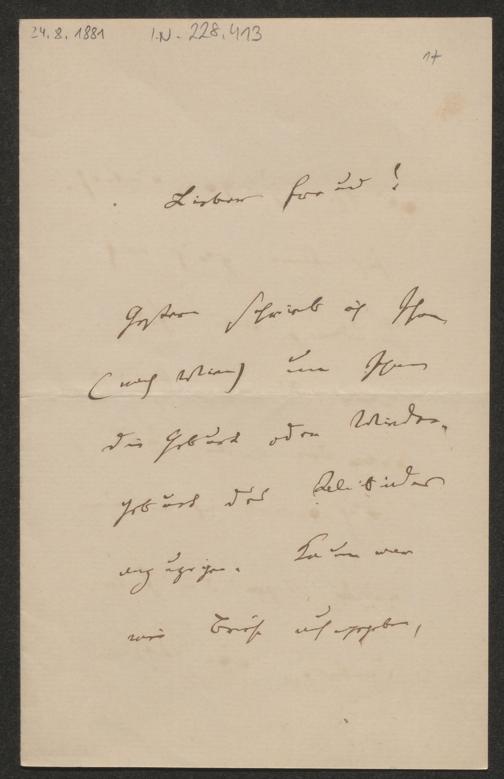 24.8.1881 I.N. 228.413
17
Lieber Freund!
Gestern schrieb ich Ihnen
(nach Wien) um Ihnen
die Geburt oder Wieder-
geburt des
anzuzeigen. Kaum war
mein Brief aufgegeben,